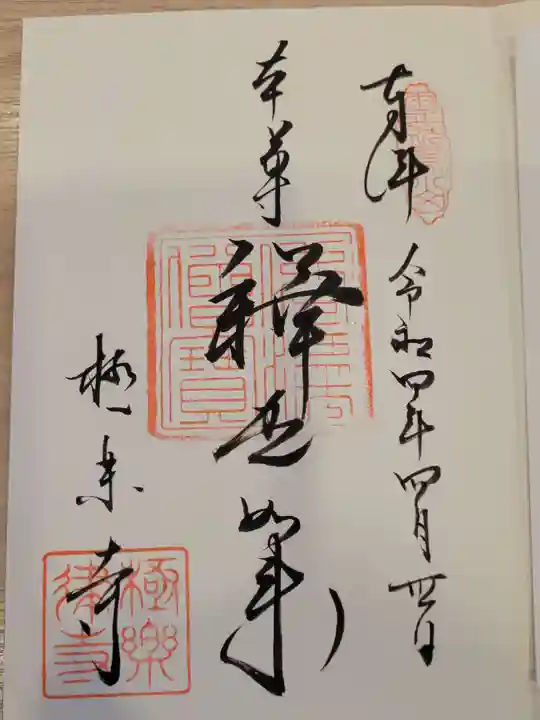 奉拝 令和四年四月廿日
本尊 釋迦如来
極楽寺
極樂律寺